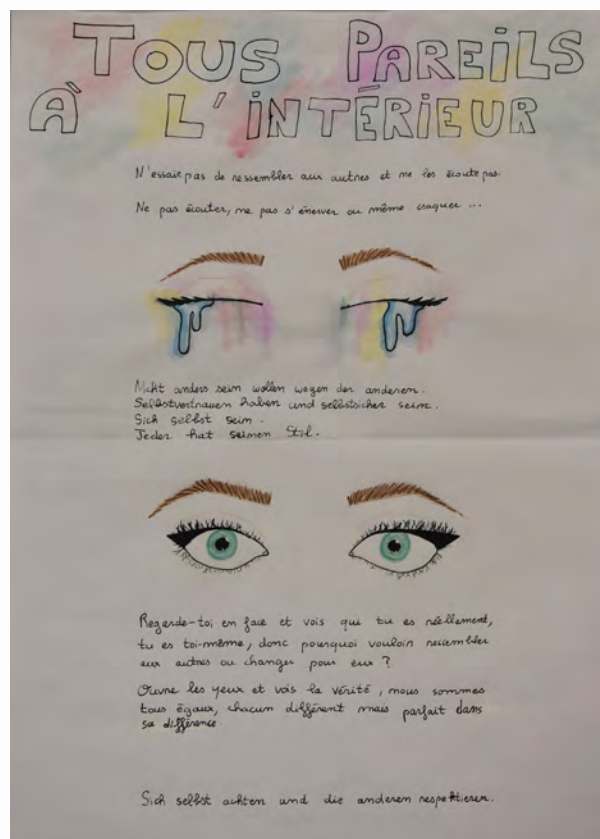 TOUS PAREiLS
À L'iNTÉRiEUR
N'essaie pas de ressembler aux autres et ne les écoute pas.
Ne pas écouter, ne pas s'énerver ou même craquer ...
Nicht anders sein wollen wegen der anderen.
Selbstvertrauen haben und selbstsicher sein.
Sich selbst sein.
Jeder hat seinen Stil.
Regarde-toi en face et vois qui tu es réellement,
tu es toi-même, donc pourquoi vouloir ressembler
aux autres ou changer pour eux ?
Ouvre les yeux et vois la vérité, nous sommes
tous égaux, chacun différent mais parfait dans
sa différence.
Sich selbst achten und die anderen respektieren.